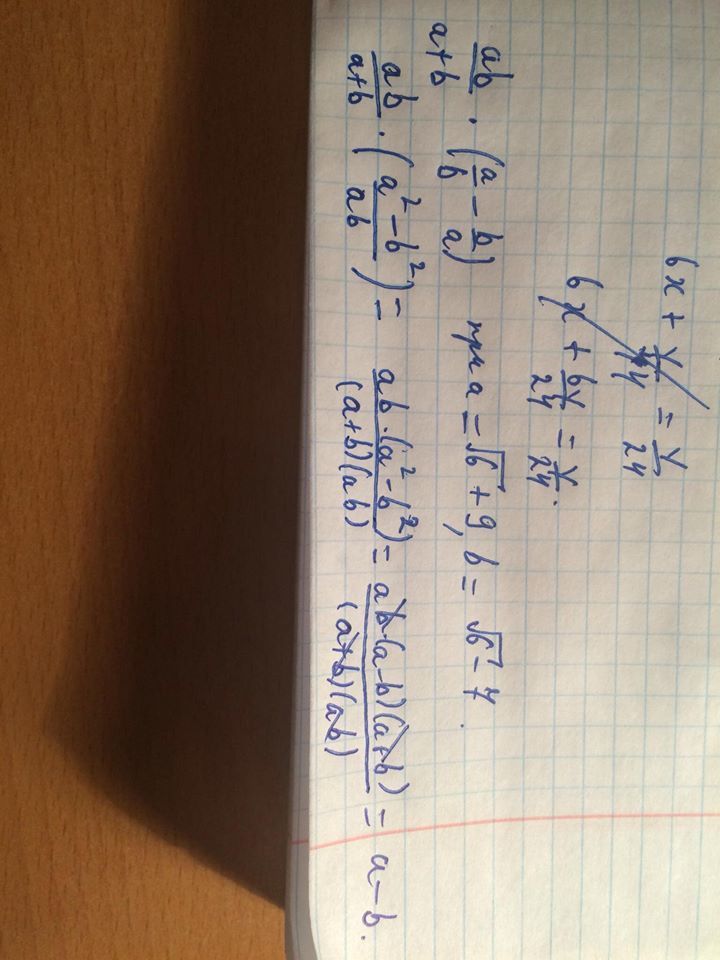 6x + y/44 = y/24
6x + 6y/24 = y/24.
ab/a+b · (a/b - b/a) при a = √6 + 9, b = √6 - 7.
ab/a+b · (a²-b²/ab) = ab·(a²-b²)/(a+b)(ab) = ab(a-b)(a+b)/(a+b)(ab) = a-b.